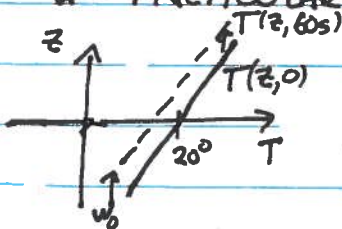 T(z, 60s)
z
T(z, 0)
20°
T
w₀